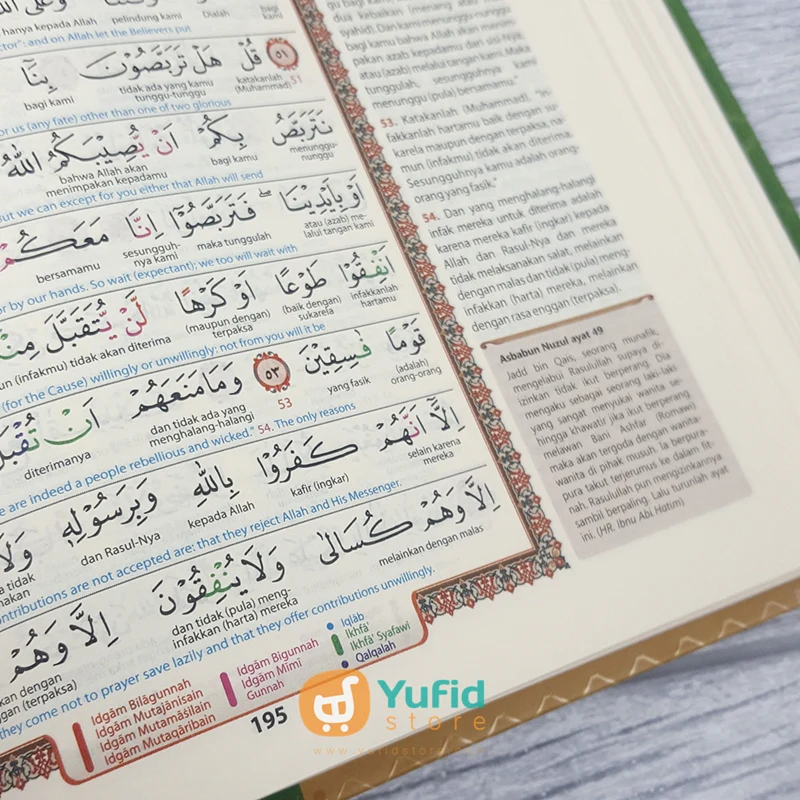 hanya kepada Allah pelindung kami Dialah bagi kami
ctor": and on Allah let the Believers put
٥١ قُلْ هَلْ تَرَبَّصُوْنَ بِنَآ
51 katakanlah (Muhammad) tidak ada yang kamu tunggu-tunggu bagi kami
or us (any fate) other than one of two glorious
نَتَرَبَّصُ بِكُمْ اَنْ يُّصِيْبَكُمُ اللّٰهُ
menunggu-nunggu bagi kamu bahwa Allah akan menimpakan kepadamu
But we can expect for you either that Allah will send
اَوْ بِاَيْدِيْنَا فَتَرَبَّصُوْٓا اِنَّا مَعَكُمْ
atau (azab) melalui tangan kami maka tunggulah sesungguhnya kami bersamamu
or by our hands. So wait (expectant); we too will wait with
اَنْفِقُوْا طَوْعًا اَوْ كَرْهًا لَّنْ يُّتَقَبَّلَ مِنْ
infakkanlah hartamu (baik dengan) sukarela (maupun dengan) terpaksa (infakmu) tidak akan diterima
(for the Cause) willingly or unwillingly: not from you will it be
قَوْمًا فٰسِقِيْنَ ٥٣ وَمَا مَنَعَهُمْ اَنْ تُقْبَلَ
(adalah) orang-orang yang fasik 53 dan tidak ada yang menghalang-halangi diterimanya
e are indeed a people rebellious and wicked." 54. The only reasons
اِلَّآ اَنَّهُمْ كَفَرُوْا بِاللّٰهِ وَبِرَسُوْلِهٖ وَلَا
selain karena mereka kafir (ingkar) kepada Allah dan Rasul-Nya
contributions are not accepted are: that they reject Allah and His Messenger.
اِلَّا وَهُمْ كُسَالٰى وَلَا يُنْفِقُوْنَ اِلَّا وَهُمْ
melainkan dengan malas dan tidak (pula) menginfakkan (harta) mereka
they come not to prayer save lazily and that they offer contributions unwillingly.
dua kebaikan (menang atau mati
syahid). Dan kami menunggu-nunggu
bagi kamu bahwa Allah akan menim-
pakan azab kepadamu dari sisi-Nya,
atau (azab) melalui tangan kami. Maka
tunggulah, sesungguhnya kami
menunggu (pula) bersamamu."
53. Katakanlah (Muhammad), "In-
fakkanlah hartamu baik dengan su-
karela maupun dengan terpaksa, na-
mun (infakmu) tidak akan diterima.
Sesungguhnya kamu adalah orang-
orang yang fasik."
54. Dan yang menghalang-halangi
infak mereka untuk diterima adalah
karena mereka kafir (ingkar) kepada
Allah dan Rasul-Nya dan mereka
tidak melaksanakan salat, melainkan
dengan malas dan tidak (pula) meng-
infakkan (harta) mereka, melainkan
dengan rasa enggan (terpaksa).
Asbabun Nuzul ayat 49
Jadd bin Qais, seorang munafik,
mengelabui Rasulullah supaya di-
izinkan tidak ikut berperang. Dia
mengaku sebagai seorang laki-laki
yang sangat menyukai wanita se-
hingga khawatir jika ikut berperang
melawan Bani Ashfar (Romawi)
maka akan tergoda dengan wanita-
wanita di pihak musuh. Ia berpura-
pura takut terjerumus ke dalam fit-
nah. Rasulullah pun mengizinkannya
sambil berpaling. Lalu turunlah ayat
ini. (HR. Ibnu Abi Hatim)
Idgām Bilāgunnah
Idgām Mutajānisain
Idgām Mutamāṡilain
Idgām Mutaqāribain
Idgām Bigunnah
Idgām Mimi
Gunnah
Iqlāb
Ikhfā'
Ikhfā' Syafawi
Qalqalah
195
Yufid
store
www.yufidstore.com